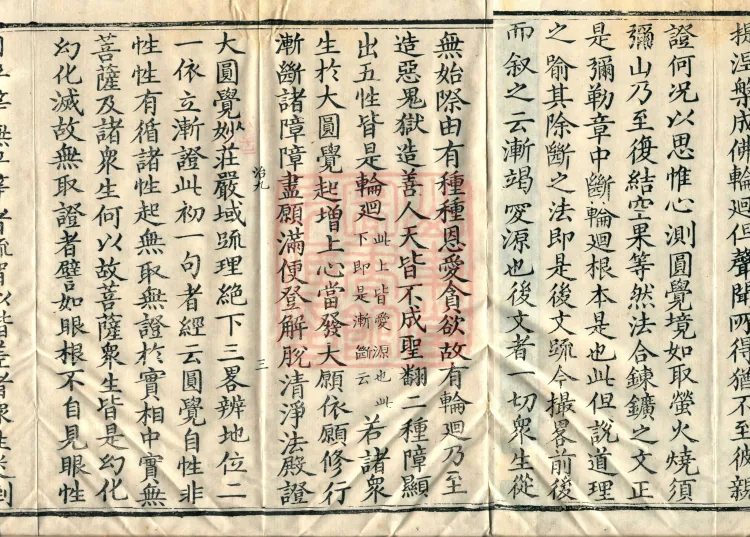 涅槃成佛輪迴但聲聞所得猶不至彼親
證何況以思惟心測圓覺境如取螢火燒須
彌山乃至復結空果等然法合鍊鑛之文正
是彌勒章中斷輪迴根本是也此但說道理
之踰其除斷之法即是後文䟽今撮畧前後
而叙之云漸竭愛源也後文者一切衆生從
無始際由有種種恩愛貪欲故有輪迴乃至
造惡鬼獄造善人天皆不成聖翻二種障顯
出五性皆是輪迴此上皆愛源也此下即是漸斷云若諸衆
生於大圓覺起增上心當發大願依願修行
漸斷諸障障盡願滿便登解脫清淨法殿證
治九 三
大圓覺妙莊嚴域䟽理絕下三畧辨地位二
一依立漸證此初一句者經云圓覺自性非
性性有循諸性起無取無證於實相中實無
菩薩及諸衆生何以故菩薩衆生皆是幻化
幻化滅故無取證者譬如眼根不自見眼性